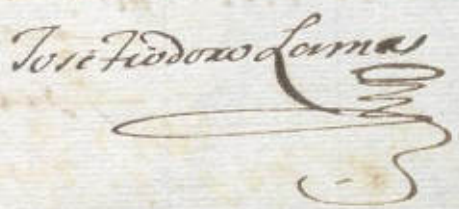 Jose Tiodoro Lamas